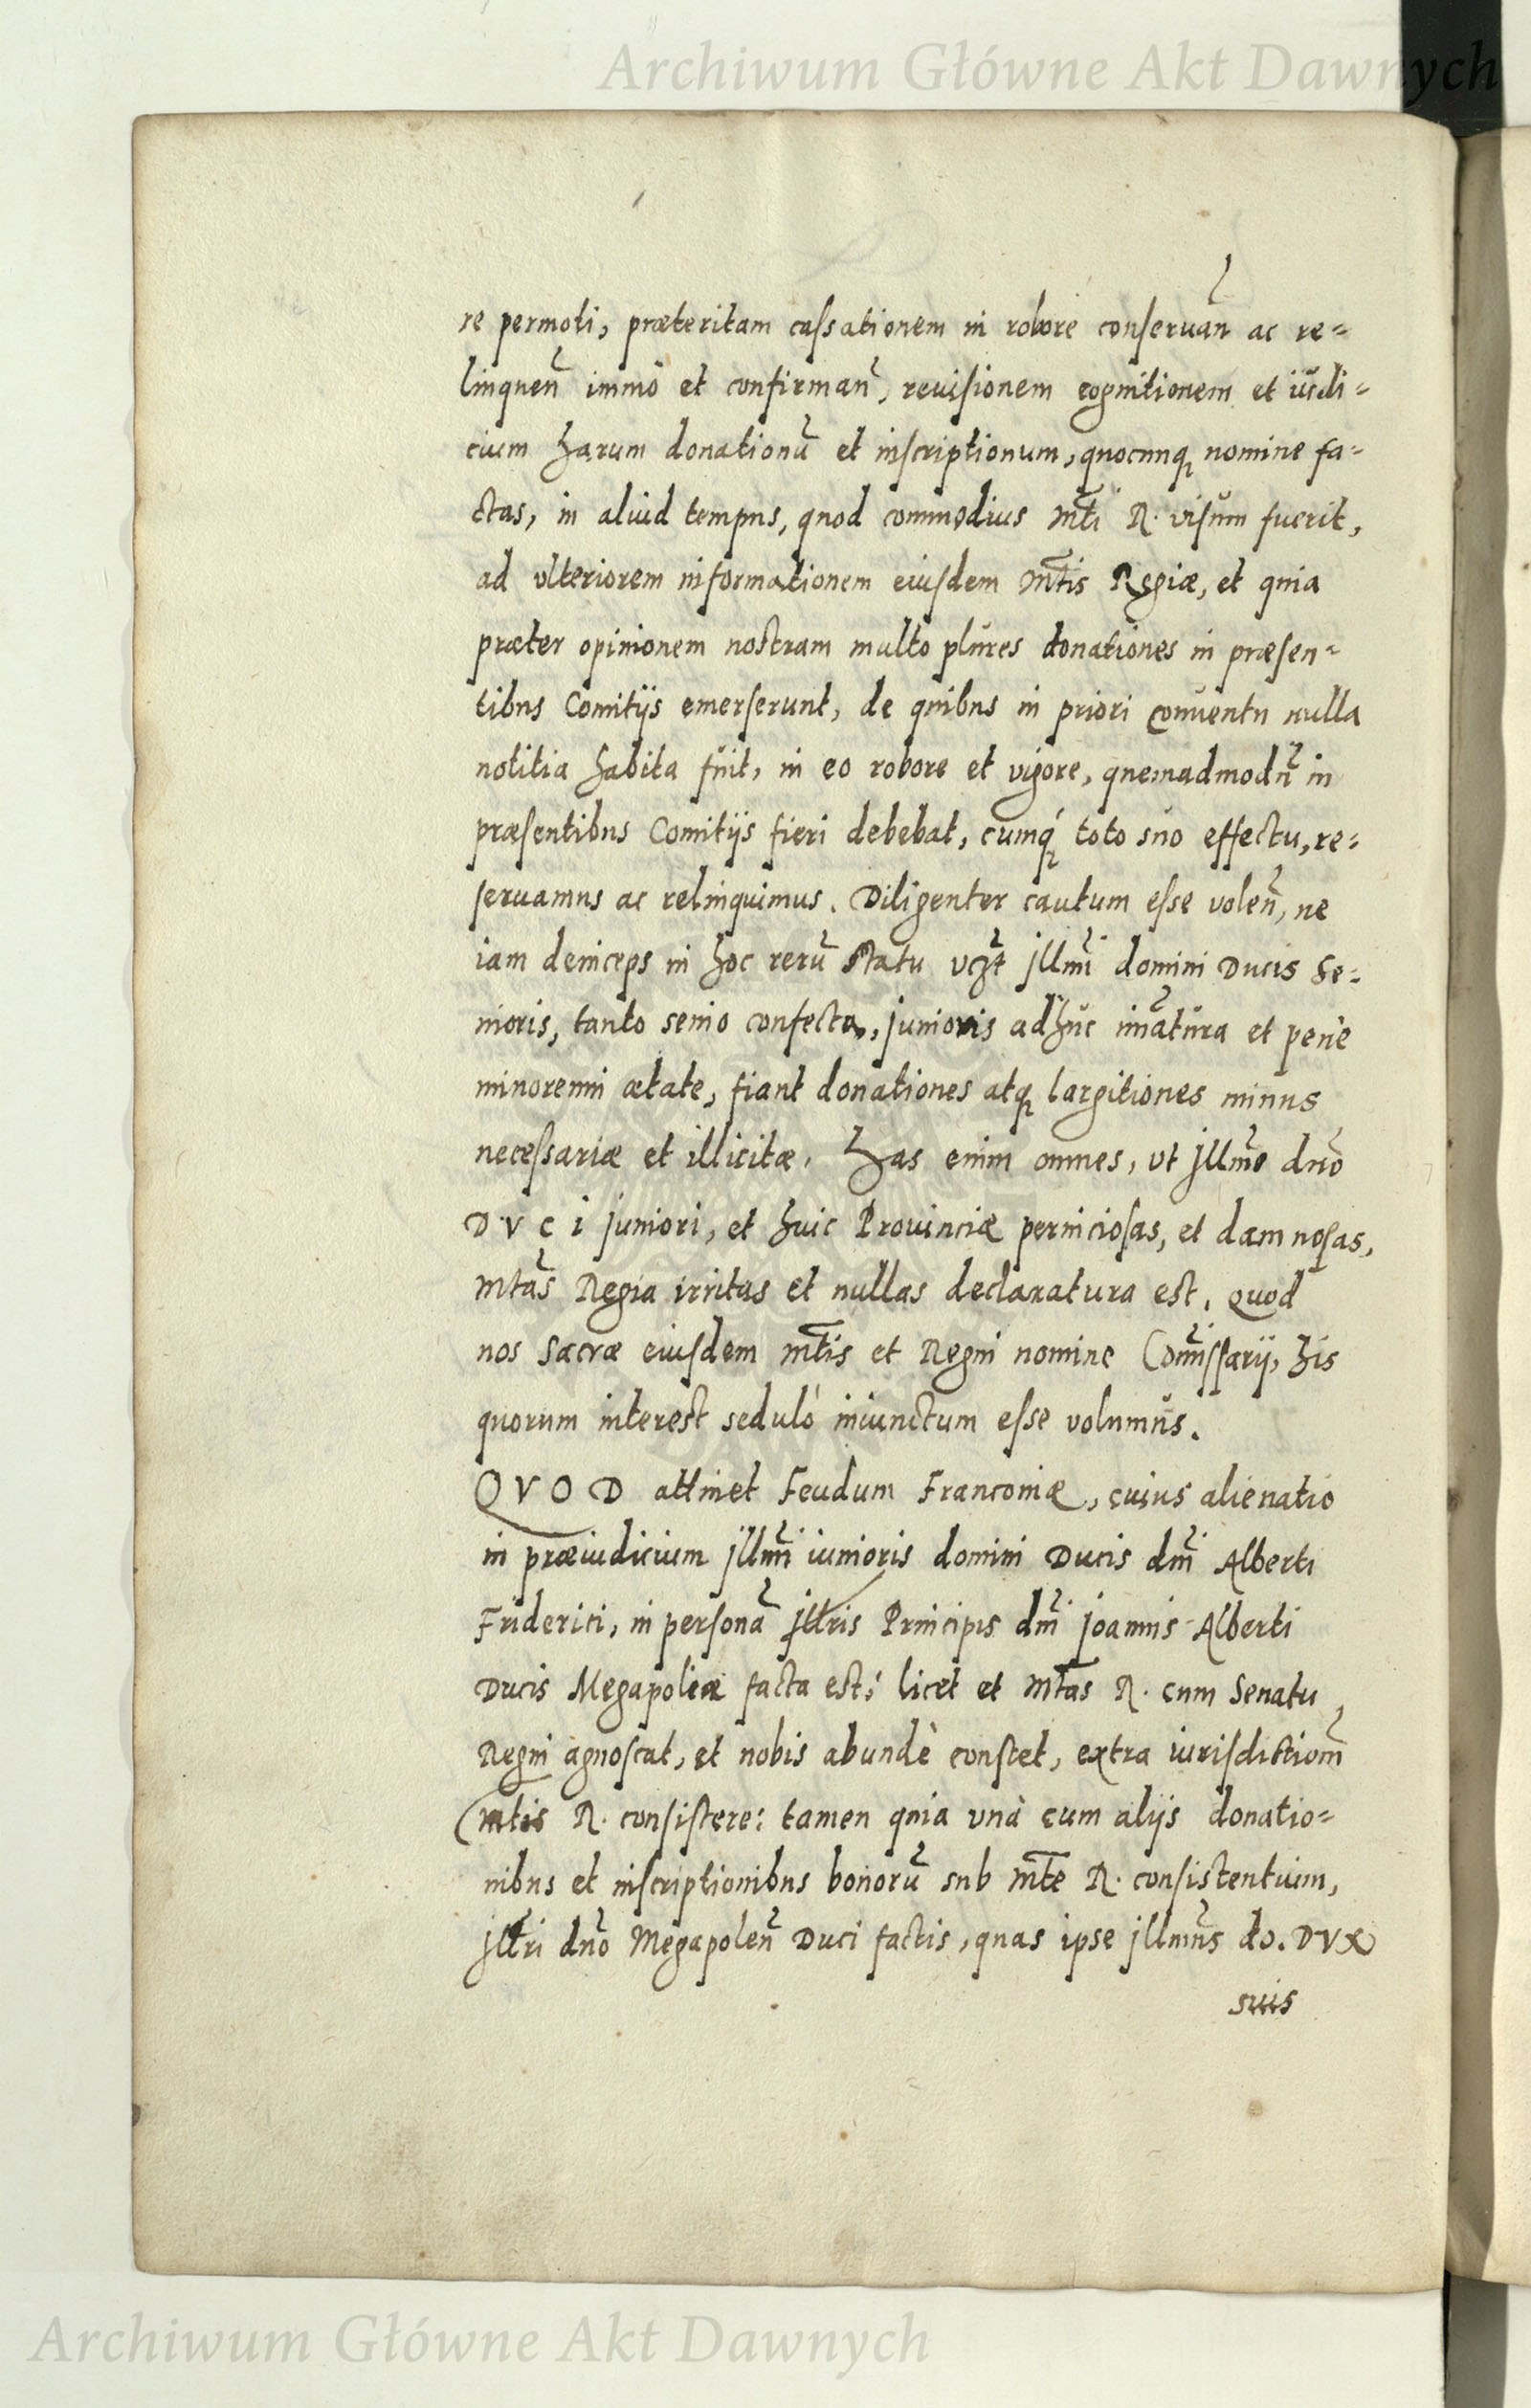 Archiwum Główne Akt Dawnych
re permoti, præteritam cassationem in robore conseruañ ac re-
linqueñ immò et confirmañ, reuisionem cognitionem et iudi-
cium harum donationũ et inscriptionum, quocunq; nomine fa-
ctas, in aliud tempus, quod commodius Mt̃i R. visum fuerit,
ad vlteriorem informationem eiusdem Mt̃is Regiæ, et quia
præter opinionem nostram multo plures donationes in præsen-
tibus Comitijs emerserunt, de quibus in priori conuentu nulla
notitia habita fuit, in eo robore et vigore, quemadmodũ in
præsentibus Comitijs fieri debebat, cumq; toto suo effectu, re-
seruamus ac relinquimus. Diligenter cautum esse voleñ, ne
iam deinceps in hoc rerũ statu vcz̃t Jllmĩ domini Ducis Se-
nioris, tanto senio confecto, junioris adhuc im̃atura et penè
minorenni ætate, fiant donationes atq; largitiones minus
necessariæ et illicitæ. Has enim omnes, vt Jllm̃o dnõ
DVCi juniori, et huic Prouinciæ perniciosas, et damnosas,
Mtãs Regia irritas et nullas declaratura est. Quod
nos Sacræ eiusdem Mt̃is et Regni nomine Com̃issarij, his
quorum interest sedulò iniunctum esse volumus.
QVOD attinet Feudum Franconiæ, cuius alienatio
in præiudicium Jllmĩ iunioris domini Ducis dm̃i Alberti
Friderici, in personã Jllr̃is Principis dm̃i Joannis Alberti
Ducis Megapoliæ facta est; licet et Mt̃as R. cum Senatu
Regni agnoscat, et nobis abundè constet, extra iurisdictiom̃
Mtis R. consistere: tamen quia vnà cum alijs donatio-
nibus et inscriptionibus bonorũ sub Mt̃e R. consistentium,
Jllt̃ri dnõ Megapoleñ Duci factis, quas ipse Jllmũs do. DVX
suis
Archiwum Główne Akt Dawnych